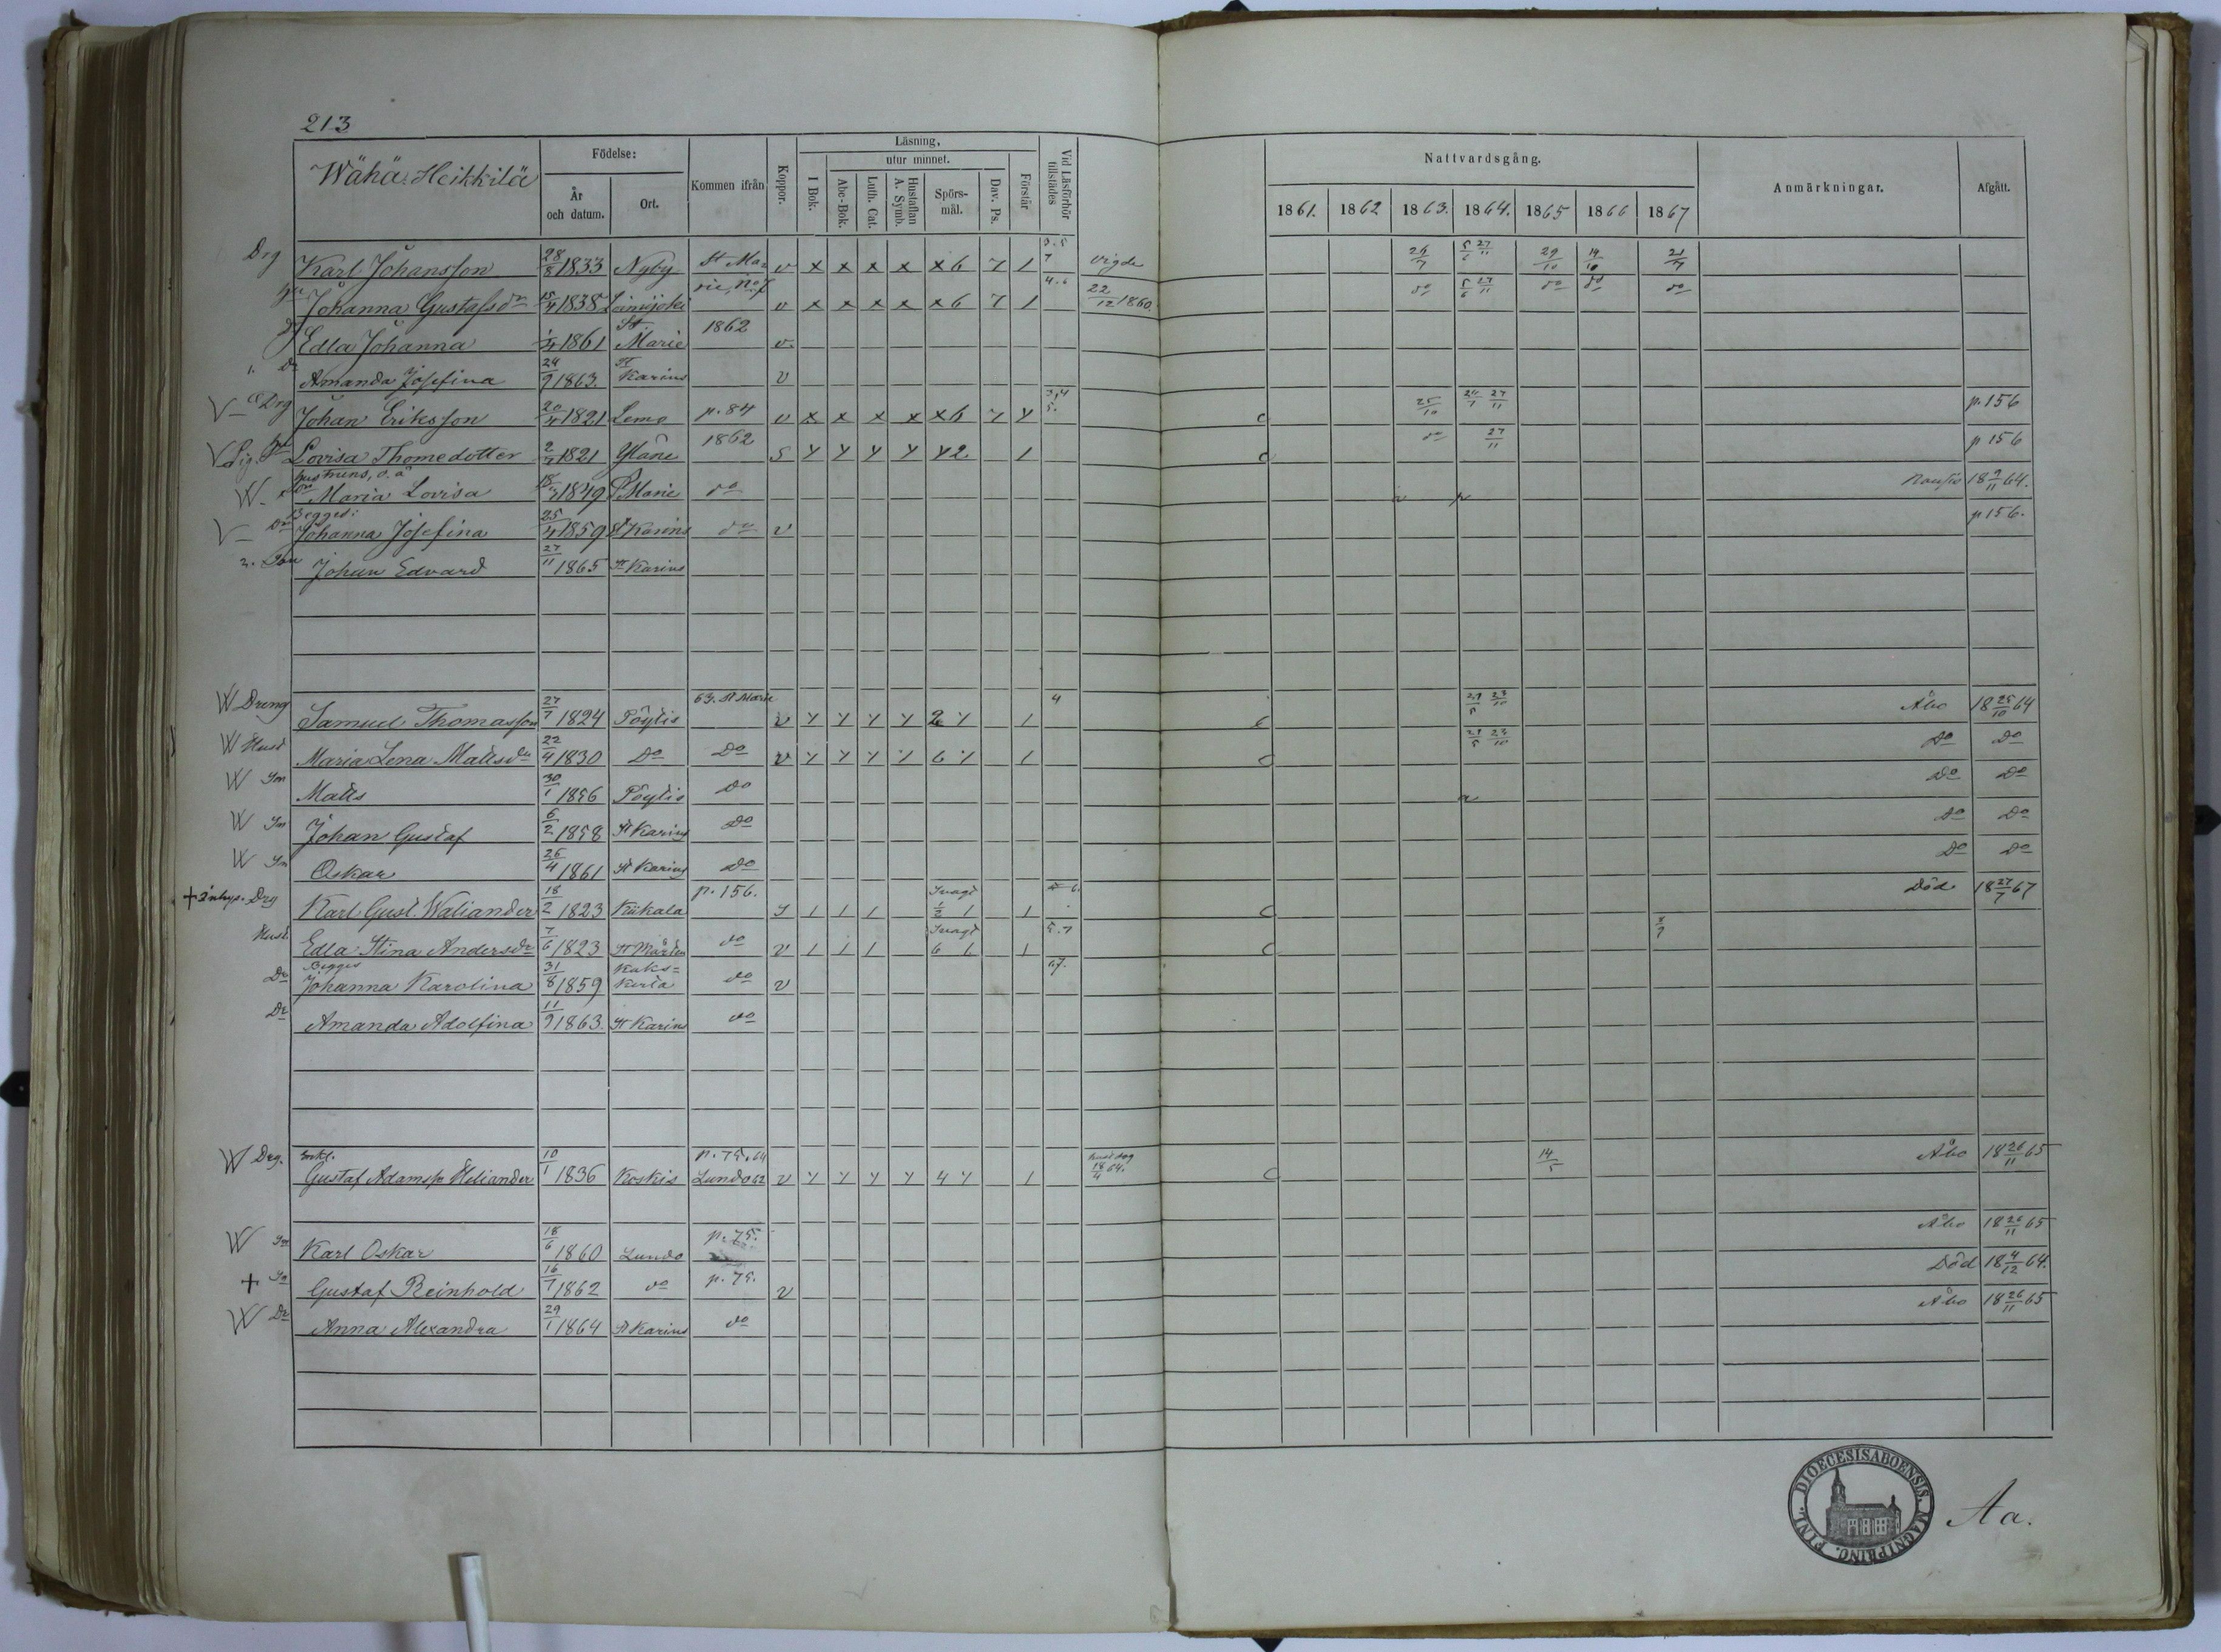 213
Wähä Heikkilä
Födelse:
År och datum.
Ort.
Kommen ifrån
Koppor.
Läsning,
I Bok.
utur minnet.
Abc-Bok.
Luth. Cat.
Hustaflan A. Symb.
Spörs-mål.
Dav. Ps.
Förstår
Vid Läsförhör tillstädes
Nattvardsgång.
1861. 1862 1863. 1864. 1865 1866 1867
Anmärkningar.
Afgått.
Drg Karl Johansson 28/8 1833 Nyby St Ma- v x x x x x 6 7 1 vigde 5/6 27/11 29/10 19/10 21/7
Johanna Gustafsdr 15/4 1838 Loimijoki v x x x x x 6 7 1 22/12 1860. do 5/6 27/11 do do do
Edla Johanna 1861 St Marie 1862 v.
1. Dr Amanda Josefina 24/9 1863. St Karins v
V Drg Johan Eriksson 20/4 1821 Lemo p. 84 v x x x x x 6 7 y c 25/10 27/11 p. 156
V Lovisa Thomedotter 1821 1862 S y y y y y 2 1 c do 27/11 p 156
hustruns, o. ä
W. Maria Lovisa 1849 St Marie do Nousis 18 9/11 64.
Begges:
V Dr Johanna Josefina 25/4 1859 St Karins do v p 156.
2. Son Johan Edvard 27/11 1865 St Karins
W Dreng Samuel Thomasson 27/7 1824 Pöytis 63. St Marie v y y y y 2 y 1 4 c 29/5 23/10 Åbo 18 25/10 64
W Hust Maria Lena Mattsdr 22/4 1830 Do Do v y y y y 6 y 1 c 29/5 23/10 Do Do
W Son Matts 30/1 1856 Pöytis Do Do Do
W Son Johan Gustaf 6/2 1858 St Karins Do Do Do
W Son Oskar 26/4 1861 St Karins Do Do Do
+ Inhys. Drg Karl Gust. Waliander 18/2 1823 Kiikala p. 156. S 1 1 1 Svagt 1/2 1 1 6. c Död 18 27/7 67
Hust. Edla Stina Andersdr 7/6 1823 St Mårtens do v 1 1 1 Svagt 6 1 1 5.7 c
Begges
Dr Johanna Karolina 31/8 1859 Kaks=kerta do v
Dr Amanda Adolfina 11/9 1863. St Karins do
W Drg. Enkl. Gustaf Adamss. Heliander 10/1 1836 Koskis p. 75. 64 Lundo 62 v y y y y 4 y 1 18/4 64. c 14/5 Åbo 18 26/11 65
W Son Karl Oskar 18/6 1860 Lundo p. 75. Åbo 18 26/11 65
+ So Gustaf Reinhold 16/7 1862 do p. 75. v Död 18 4/12 64.
W Dr Anna Alexandra 29/1 1864 St Karins do Åbo 18 26/11 65
DIOECESIS ABOENSIS. MAGNI PRINC. FINL.
Aa.